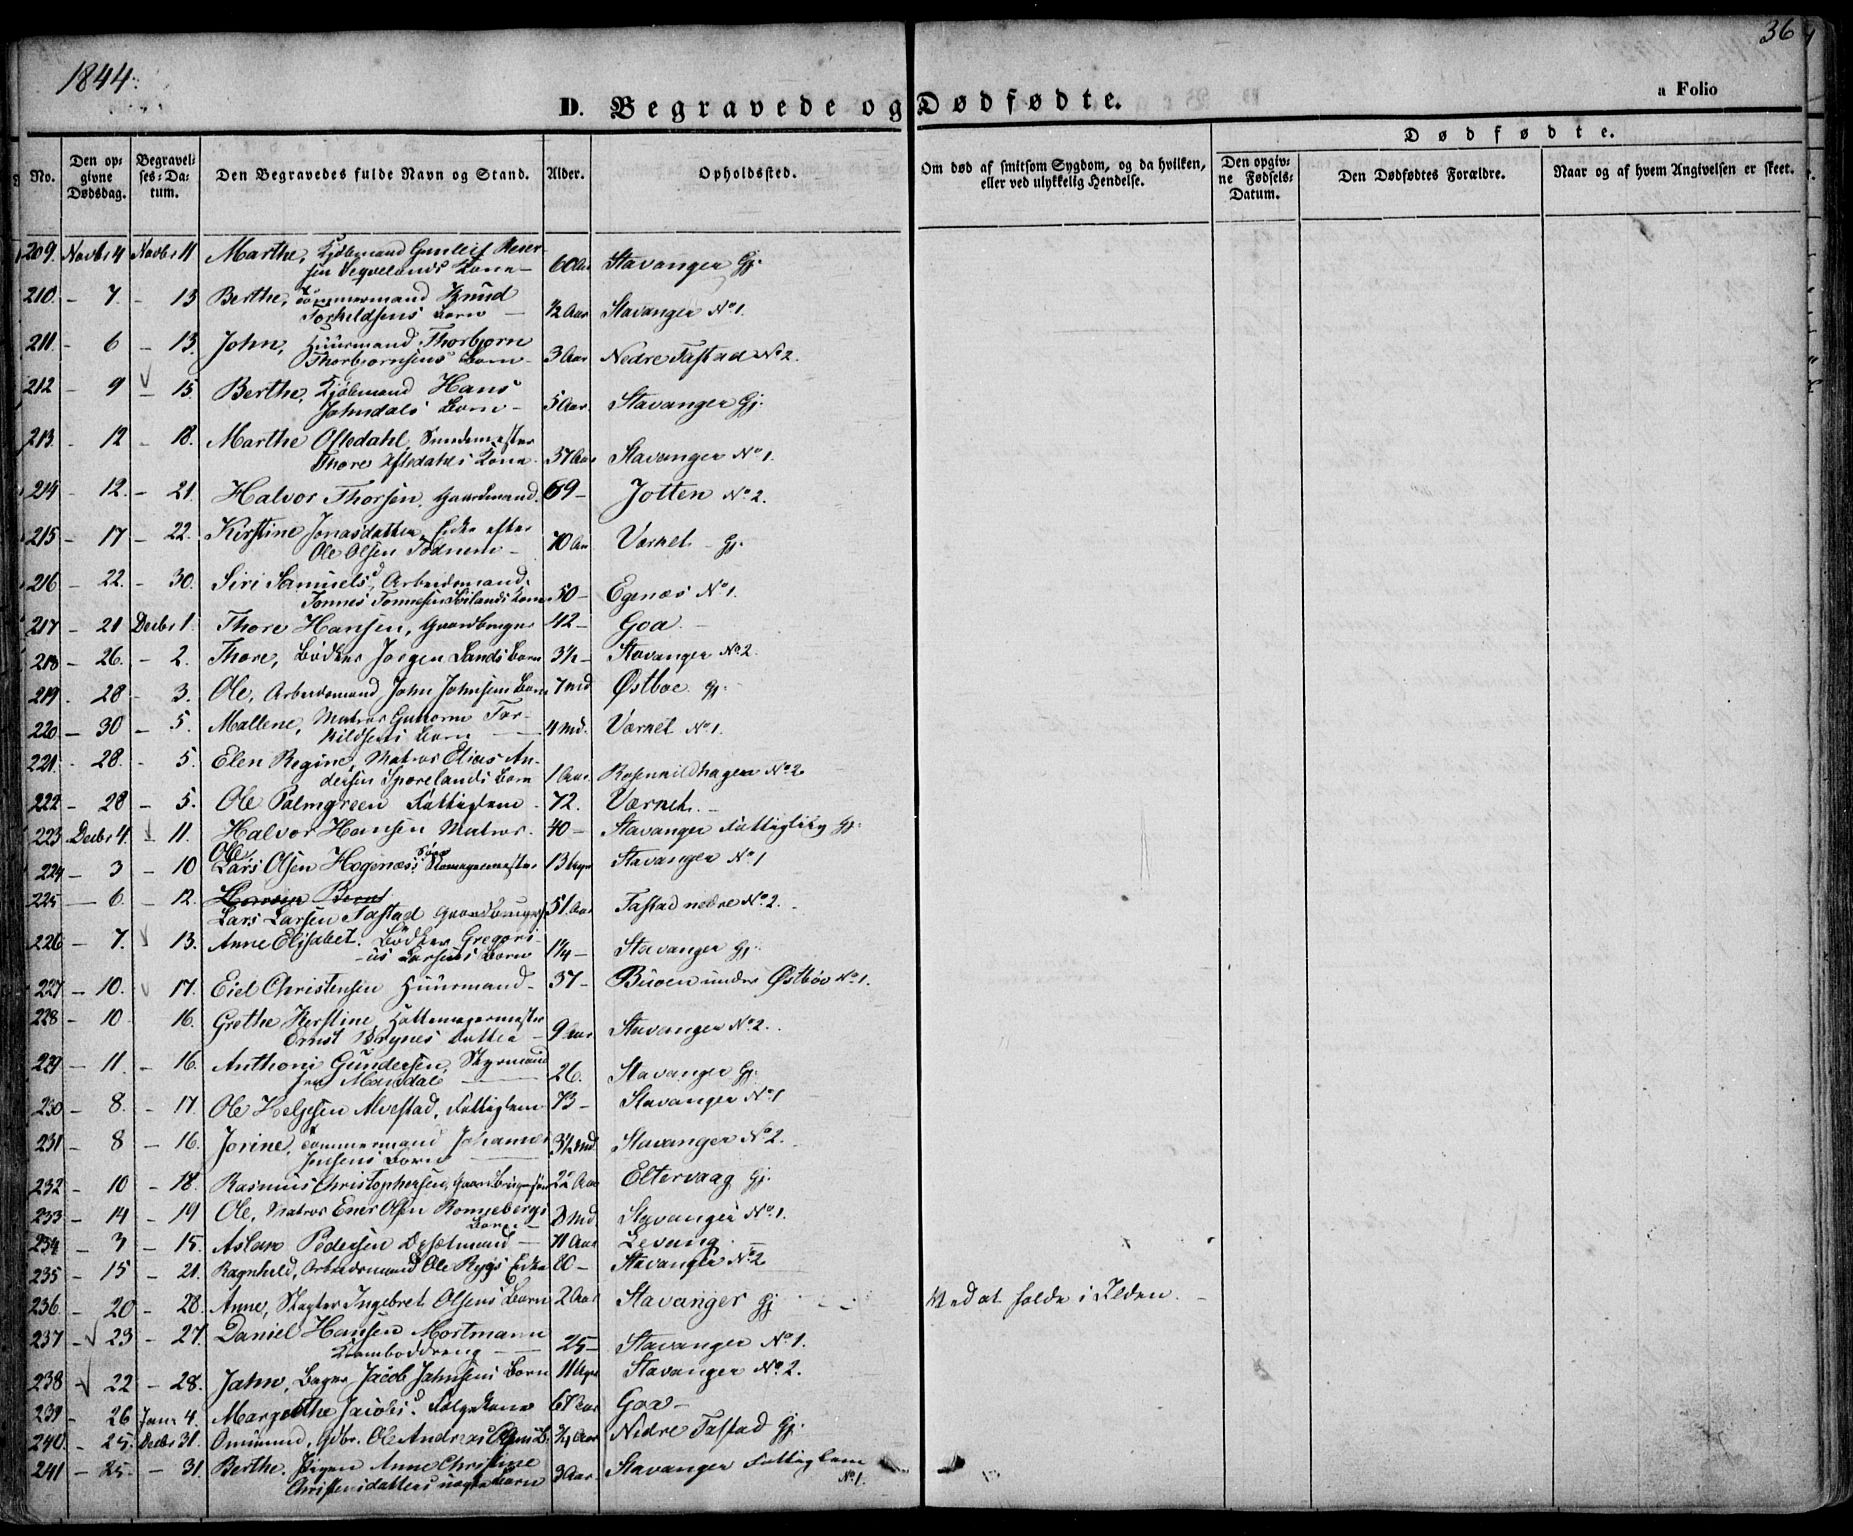 1844.
36
D. Begravede og Dødfødte.
a Folio
No.
Den opgivne Dødsdag.
Begravelses-Datum.
Den Begravedes fulde Navn og Stand.
Alder.
Opholdssted.
Om død af smitsom Sygdom, og da hvilken, eller ved ulykkelig Hendelse.
Dødfødte.
Den opgivne Fødsels-Datum.
Den Dødfødtes Forældre.
Naar og af hvem Angivelsen er skeet.
209. Novbr 4 Novbr 11 Marthe, Kjøbmand Gunleif
Kone - 60 Aar Stavanger Gj.
210. - 7. - 13 Berthe, Tømmermand Knud
Torkildsens Barn - ½ Aar Stavanger No 1.
211 - 6 - 13. John, Huurmand Thorbjørn
Thorbjørnsens Barn - 3 Aar Nedre Tastad No 2.
212 - 9 - 15. Berthe, Kjøbmand Hans
Johndals Barn - 5 Aar Stavanger Gj.
213. - 12 - 18. Marthe Oftedahl,
Thore Oftedahls Kone 37 Aar Stavanger No 1.
214 - 12. - 21. Halvor Thorsen, Gaardmand. 69 - Jotten No 2.
215 - 17 - 22. Kirstine Jonasdatter, Enke efter
Ole Olsen Tødnem - 70 Aar Værket - Gj.
216 - 22. - 30. Siri Samuelsd, Arbeidsmand
Tønnes Tønnesen Kone 50 - Egenæs No 1.
217 - 21 Decbr 1. Thore Hansen, Gaardbruger 42 - Goa -
218 - 26. - 2. Thore, Bødker Jørgen Sands Barn 3½ - Stavanger No 2.
219. - 28 - 3. Ole, Arbeidsmand John Johnsens Barn 7 Md Østboe Gj.
220 - 30 - 5. Mallene, Matros Guttorm Tor-
kildsens Barn - 4 Md. Værket No 1.
221. - 28. - 5. Elen Regine, Matros Elias An-
dersen Barn 1 Aar. Rosenkildhagen No 2
222 - 28 - 5. Ole Palmgreen Fattiglem - 72. Værket. -
223 Decbr 4. - 11. Halvor Hansen Matros. 40 - Stavanger Gj.
Ole
224 - 3 - 10 Lars Olsen Høgenæs Søn 13 Uger Stavanger No 1
225 - 6 - 12. Lars Larsen Tastad Gaardbruger 51 Aar Tastad nedre No 2.
226 - 7. - 13. Anne Elisabet. Bødker Gregori-
us Larsens Barn 1¼ - Stavanger Gj.
227 - 10. - 17. Eiel Christensen Huurmand - 37 - Buøen under Østbøe No 1.
228 - 10 16. Grethe Kerstine Hattemagermester
Ornst Brynes Datter - 9 Aar Stavanger No 2.
229 - 11. - 16. Anthoni Gundersen, Styrmand
fra Mandal - 26. Stavanger Gj.
230 - 8. - 17. Ole Helgesen Alvestad, Fattiglem 73 - Stavanger No 1
231 - 8 - 16. Jorine, Tømmermand Johannes
Jensens Barn - 3½ Md Stavanger No 2.
232 - 10 - 18. Rasmus Christophersen, Gaardbrugersøn 22 Aar Eltervaag Gj.
233 - 14 - 19 Ole, Matros Ener Olsen Rønnebergs
Barn - 8 Md. Stavanger No 1.
234 - 3 - 15. Aslan Pedersen Opsætmand - 71 Aar Levang -
235 - 15 - 21. Ragnhild, Arbeidsmand Ole Rygs Enke 80 - Stavanger No 2
236. - 20 - 28. Anne, Slagter Ingebret Olsens Barn 2 Aar Stavanger Gj. Ved at falde i Ilden. -
237 - 23 - 27. Daniel Hansen Mortmann
Kramboddreng - 25 - Stavanger No 1.
238 - 22 - 28. Jahn, Bager Jacob Jahnsens Barn 11 Uger Stavanger No 2.
239 - 26 Janr 4. Margrethe Jacobsd. Følgekone 68 Aar Goa -
240. - 25. Decbr 31. Omimund, Gdbr. Ole Andreas Olsens B. ¾ Aar Nedre Tastad Gj.
241 - 25. - 31 Berthe, Pigen Anne Christine
Christensdatters uægte Barn 3 Aar. Stavanger Fattiglem
No 1.